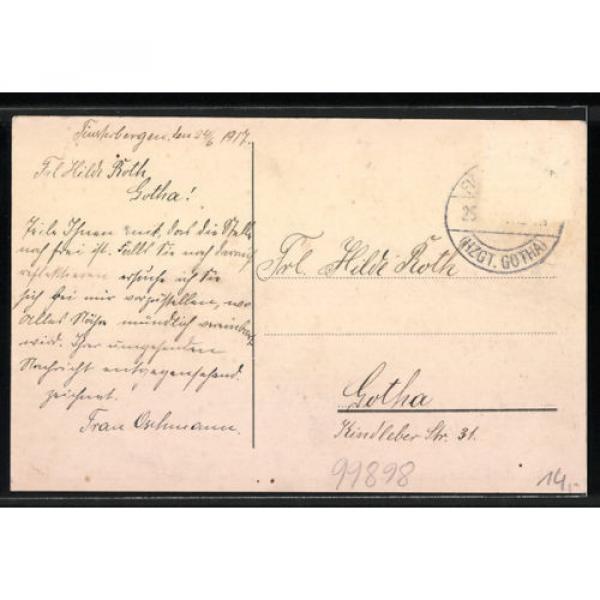 Finsterbergen, den 24/6 1917.
Frl Hilde Roth,
Gotha!
Teile Ihnen mit, das die Stelle
noch frei ist. Fallts Sie noch darauf
reflektieren ersuche ich Sie
sich bei mir vorzustellen, wo
alles Nähre mündlich vereinbart
wird. Ihrer umgehenden
Nachricht entgegensehend
zeichnet.
Frau Oschmann.
25
(HZGT. GOTHA)
Frl. Hilde Roth
Gotha
Kindleber Str. 31.
99898
14,-